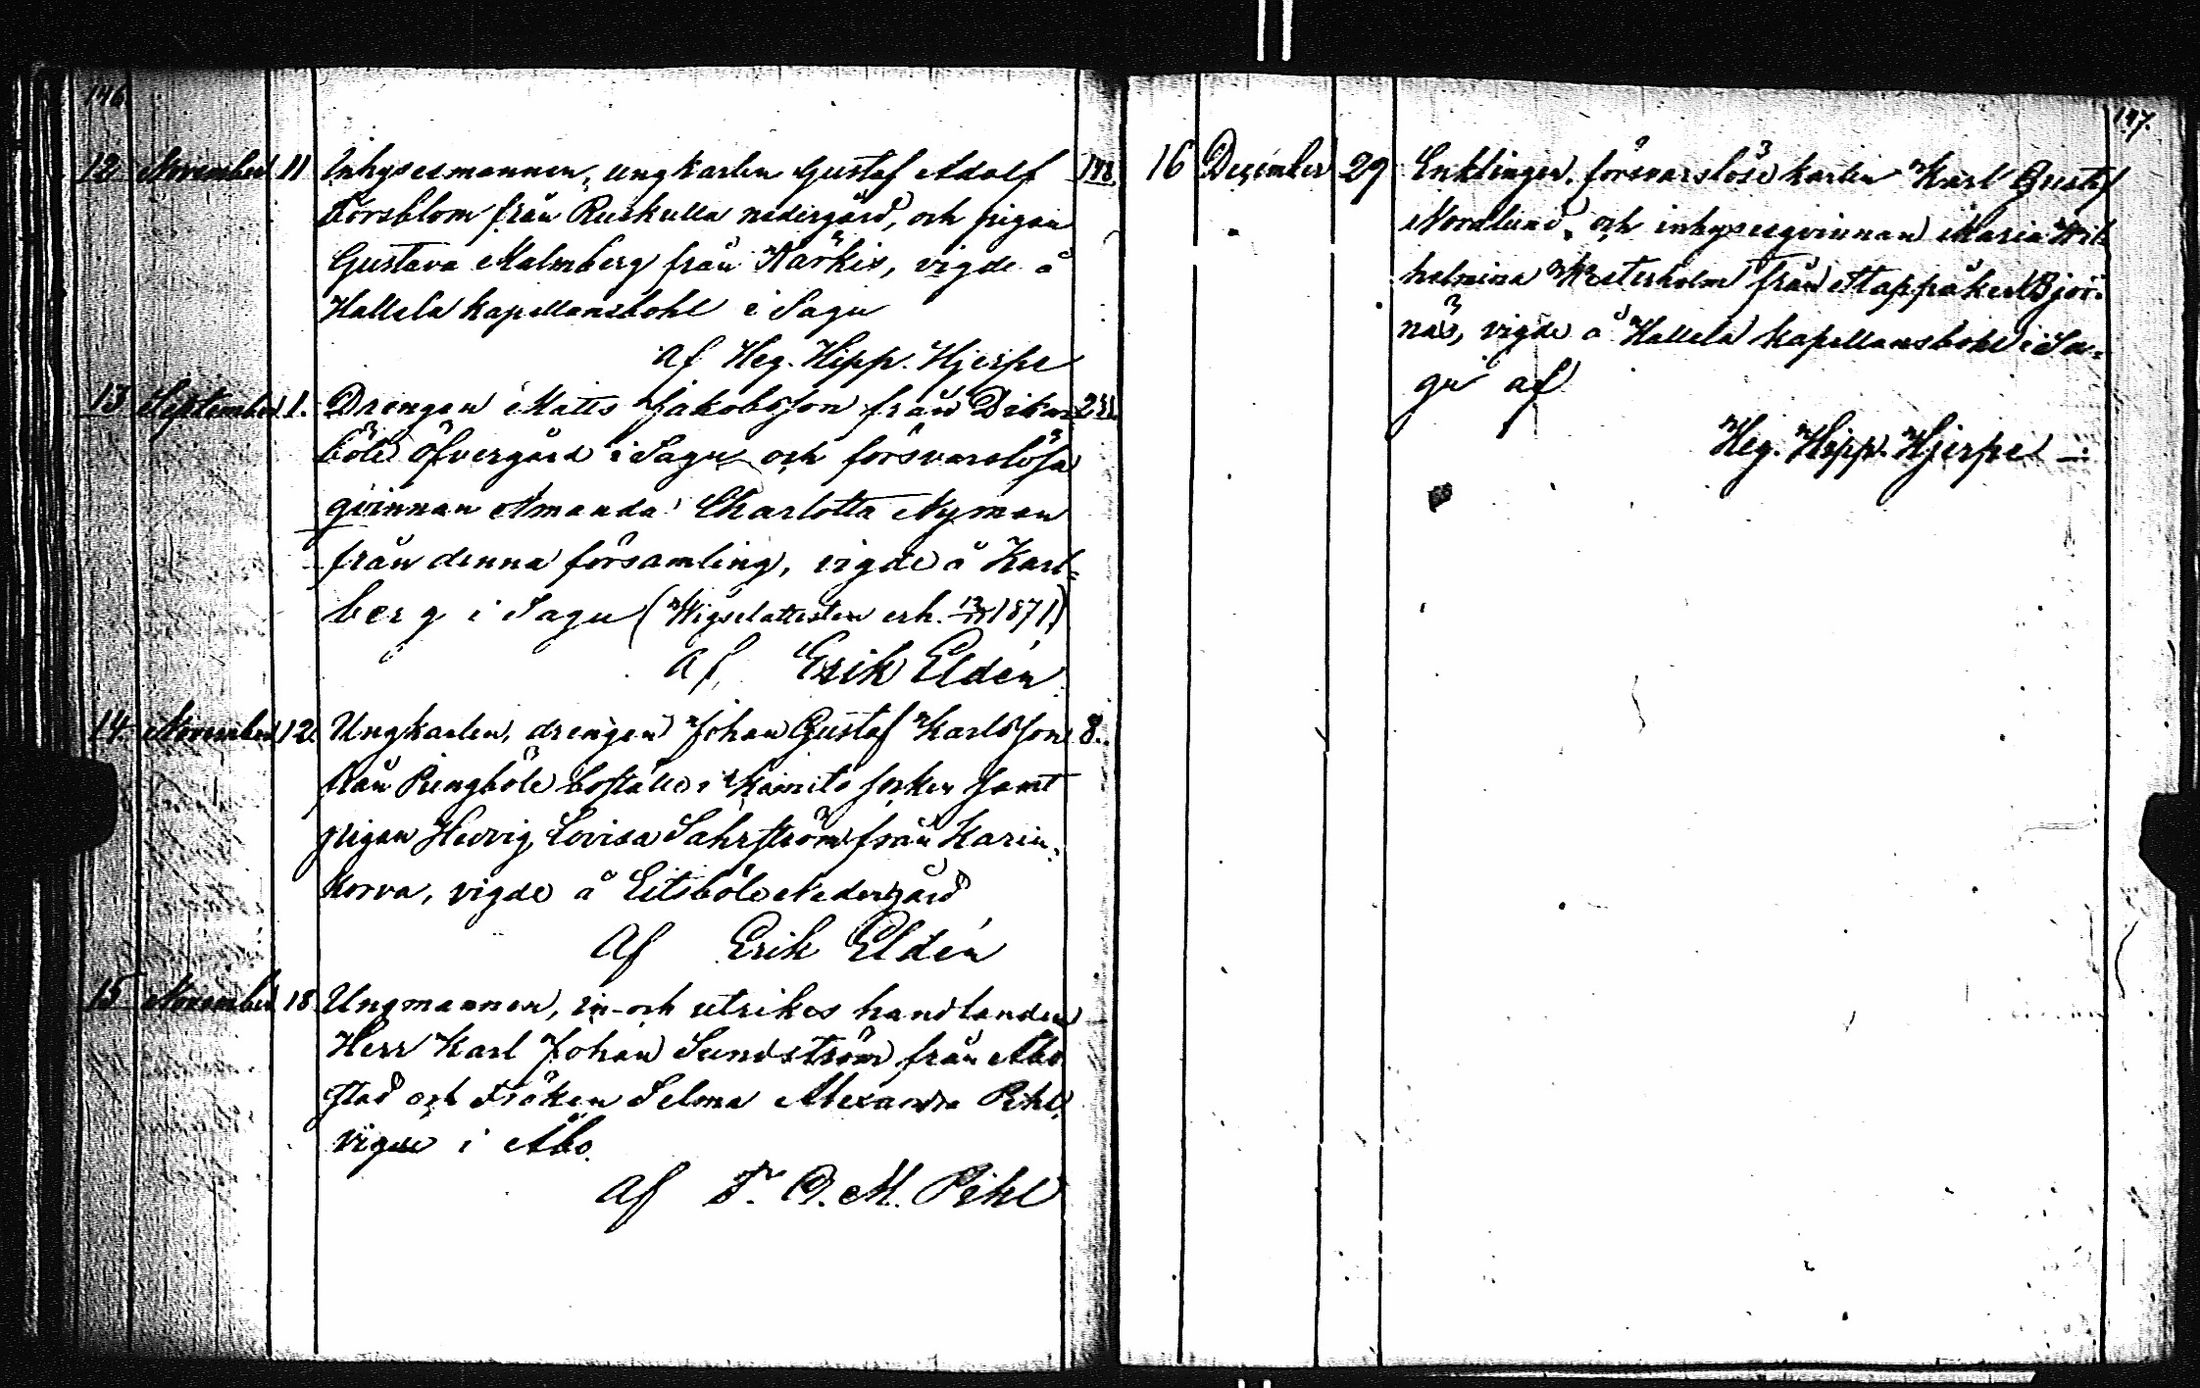 146.
12 November 11 Inhysesmannen, ungkarlen Gustaf Adolf 148.
Forsblom från Ruskulla nedergård, och pigan
Gustava Malmberg från Kärkis, vigde å
Hallela kapellansbohl i Sagu
af Heg. Hipp. Hjerpe
13 September 1. Drengen Matts Jakobsson från Dikar-
böle Öfvergård i Sagu och försvarslösa
qvinnan Amanda Charlotta Nyman
från denna församling, vigde å Karl-
berg i Sagu (Wigselattesten erh. 1871)
af Erik Eldén
14. November 12 Ungkarlen, drengen Johan Gustaf Karlsson 8.
från Pengböle boställe i Kimito socken samt
pigan Hedvig Lovisa Sahrström från Karin-
korva, vigde å Eitsböle Nedergård
af Erik Eldén
15 November 18 Ungmannen, in- och utrikes handlanden
Herr Karl Johan Sundström från Åbo
stad och Fröken Selma Alexandra Pihl,
vigde i Åbo.
af F. O. M. Pihl
147.
16 December 29 Enklingen, försvarslöse karlen Karl Gustaf
Nordlund, och inhysesqvinnan Maria Wil-
helmina Westerholm från Stappåker Björ-
näs, vigde å Hallela kapellansbohl i Sa-
gu af
Heg. Hipp. Hjerpe